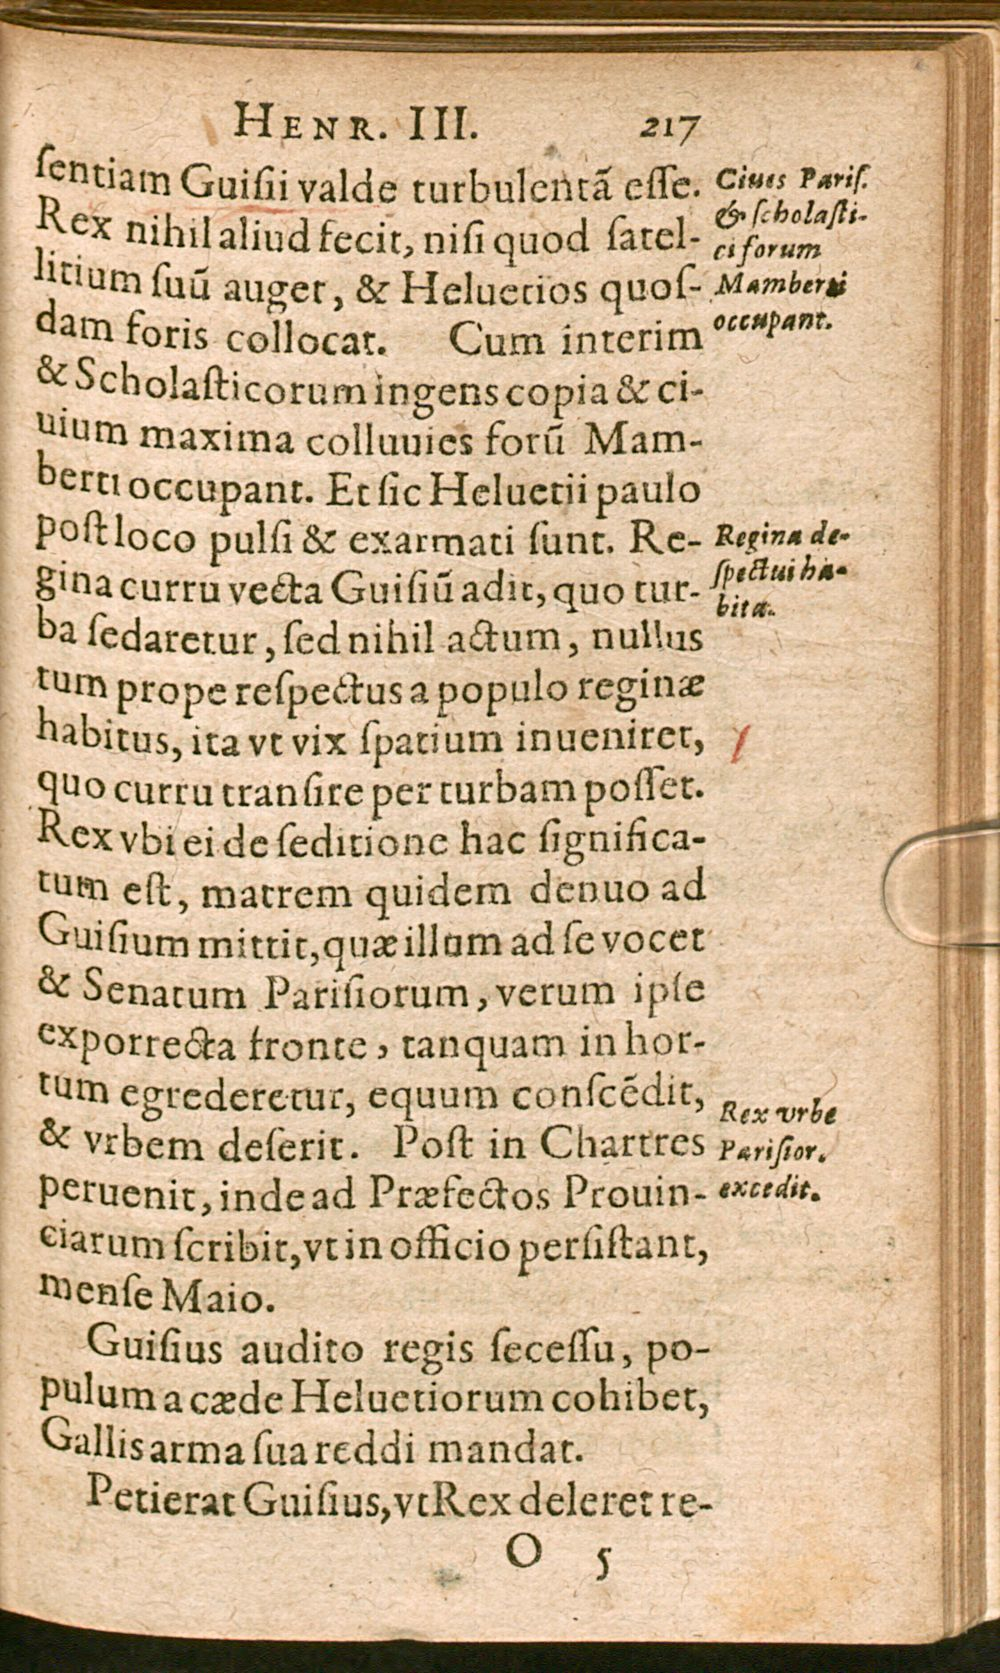 HENR. III. 217
ſentiam Guiſii valde turbulentã eſſe.
Rex nihil aliud fecit, niſi quod ſatel-
litium ſuũ auget, & Heluetios quoſ-
dam foris collocat. Cum interim
& Scholaſticorum ingens copia & ci-
uium maxima colluuies forũ Mam-
berti occupant. Et ſic Heluetii paulo
poſt loco pulſi & exarmati ſunt. Re-
gina curru vecta Guiſiũ adit, quo tur-
ba ſedaretur, ſed nihil actum, nullus
tum prope reſpectus a populo reginæ
habitus, ita vt vix ſpatium inueniret,
quo curru tranſire per turbam poſſet.
Rex vbi ei de ſeditione hac ſignifica-
tum eſt, matrem quidem denuo ad
Guiſium mittit, quæ illum ad ſe vocet
& Senatum Pariſiorum, verum ipſe
exporrecta fronte, tanquam in hor-
tum egrederetur, equum conſcẽdit,
& vrbem deſerit. Poſt in Chartres
peruenit, inde ad Præfectos Prouin-
ciarum ſcribit, vt in officio perſiſtant,
menſe Maio.
Guiſius audito regis ſeceſſu, po-
pulum a cæde Heluetiorum cohibet,
Gallis arma ſua reddi mandat.
Petierat Guiſius, vt Rex deleret re-
O 5
Ciues Pariſ.
& ſcholaſti-
ci forum
Mamberti
occupant.
Regina de-
ſpectui ha-
bita.
Rex vrbe
Pariſior.
excedit.